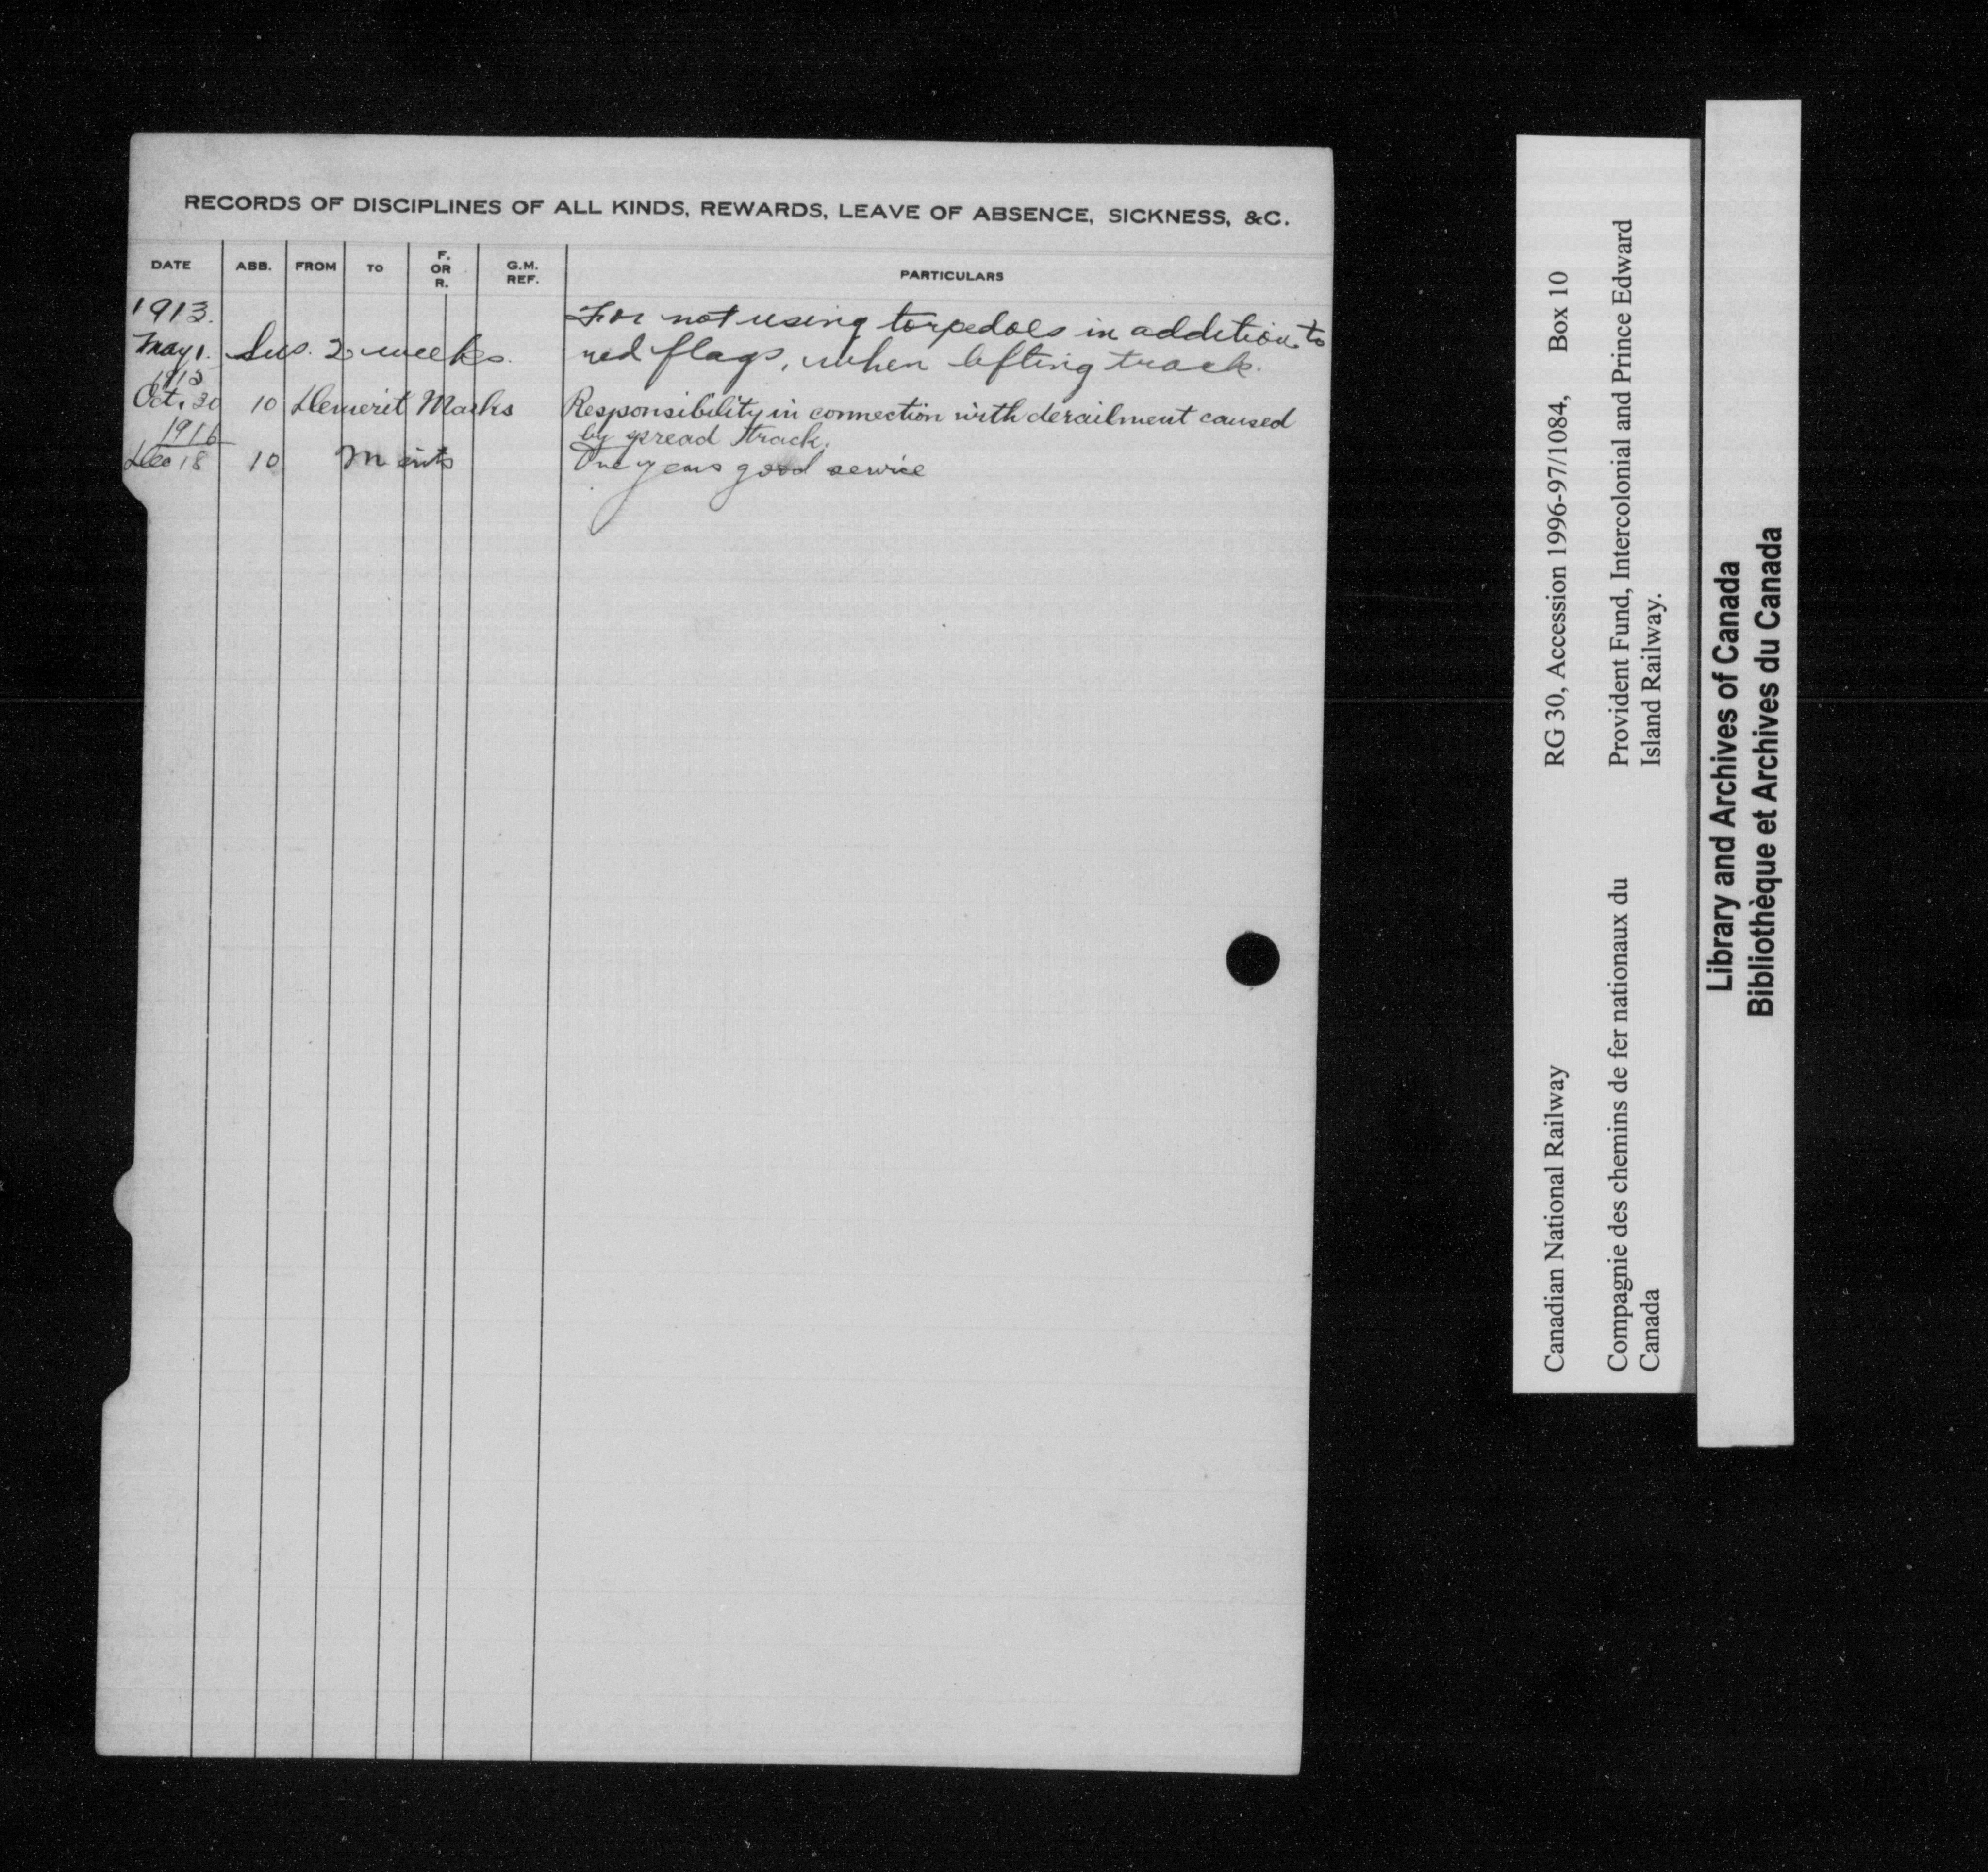 RECORDS OF DISCIPLINES OF ALL KINDS, REWARDS, LEAVE OF ABSENCE, SICKNESS, &C.
DATE ABB. FROM TO F. OR R. G.M. REF. PARTICULARS
1913. For not using torpedoes in addition to
May 1. Sus. 2 weeks. red flags, when lifting track.
1915
Oct. 30 10 Demerit Marks Responsibility in connection with derailment caused
1916 by spread track.
Dec 18 10 Merits One years good service
Canadian National Railway RG 30, Accession 1996-97/1084, Box 10
Compagnie des chemins de fer nationaux du Provident Fund, Intercolonial and Prince Edward
Canada Island Railway.
Library and Archives of Canada
Bibliothèque et Archives du Canada